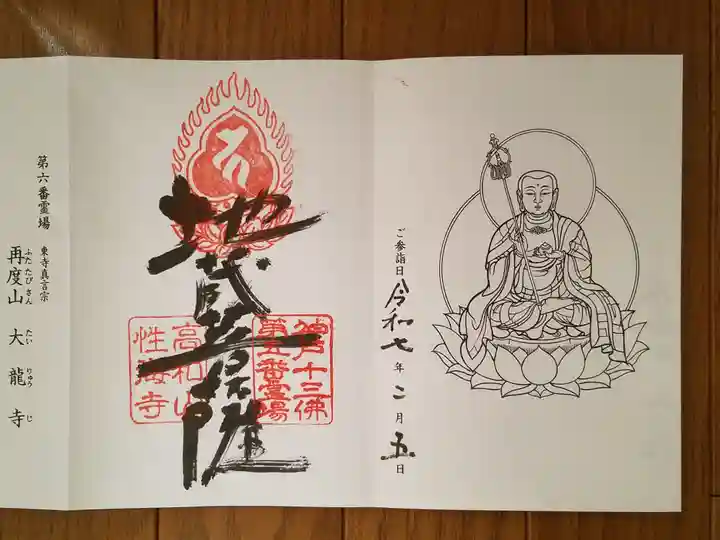 ご参詣日 令和七年二月五日
地蔵菩薩
神戸十三佛
第五番霊場
高和山
性海寺
第六番霊場
東寺真言宗
再度山 大龍寺
ふたたびさん たいりゅうじ